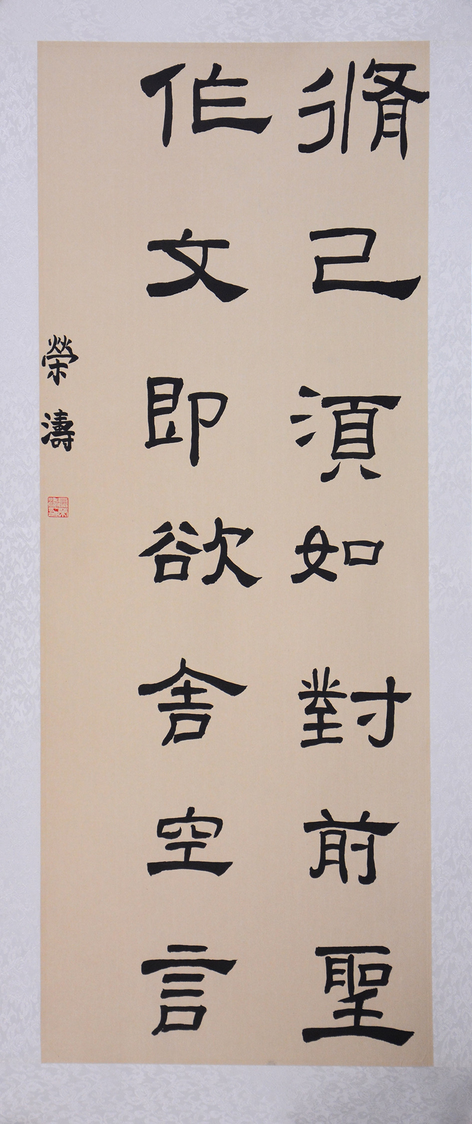 脩己須如對前聖
作文即欲舍空言
榮濤